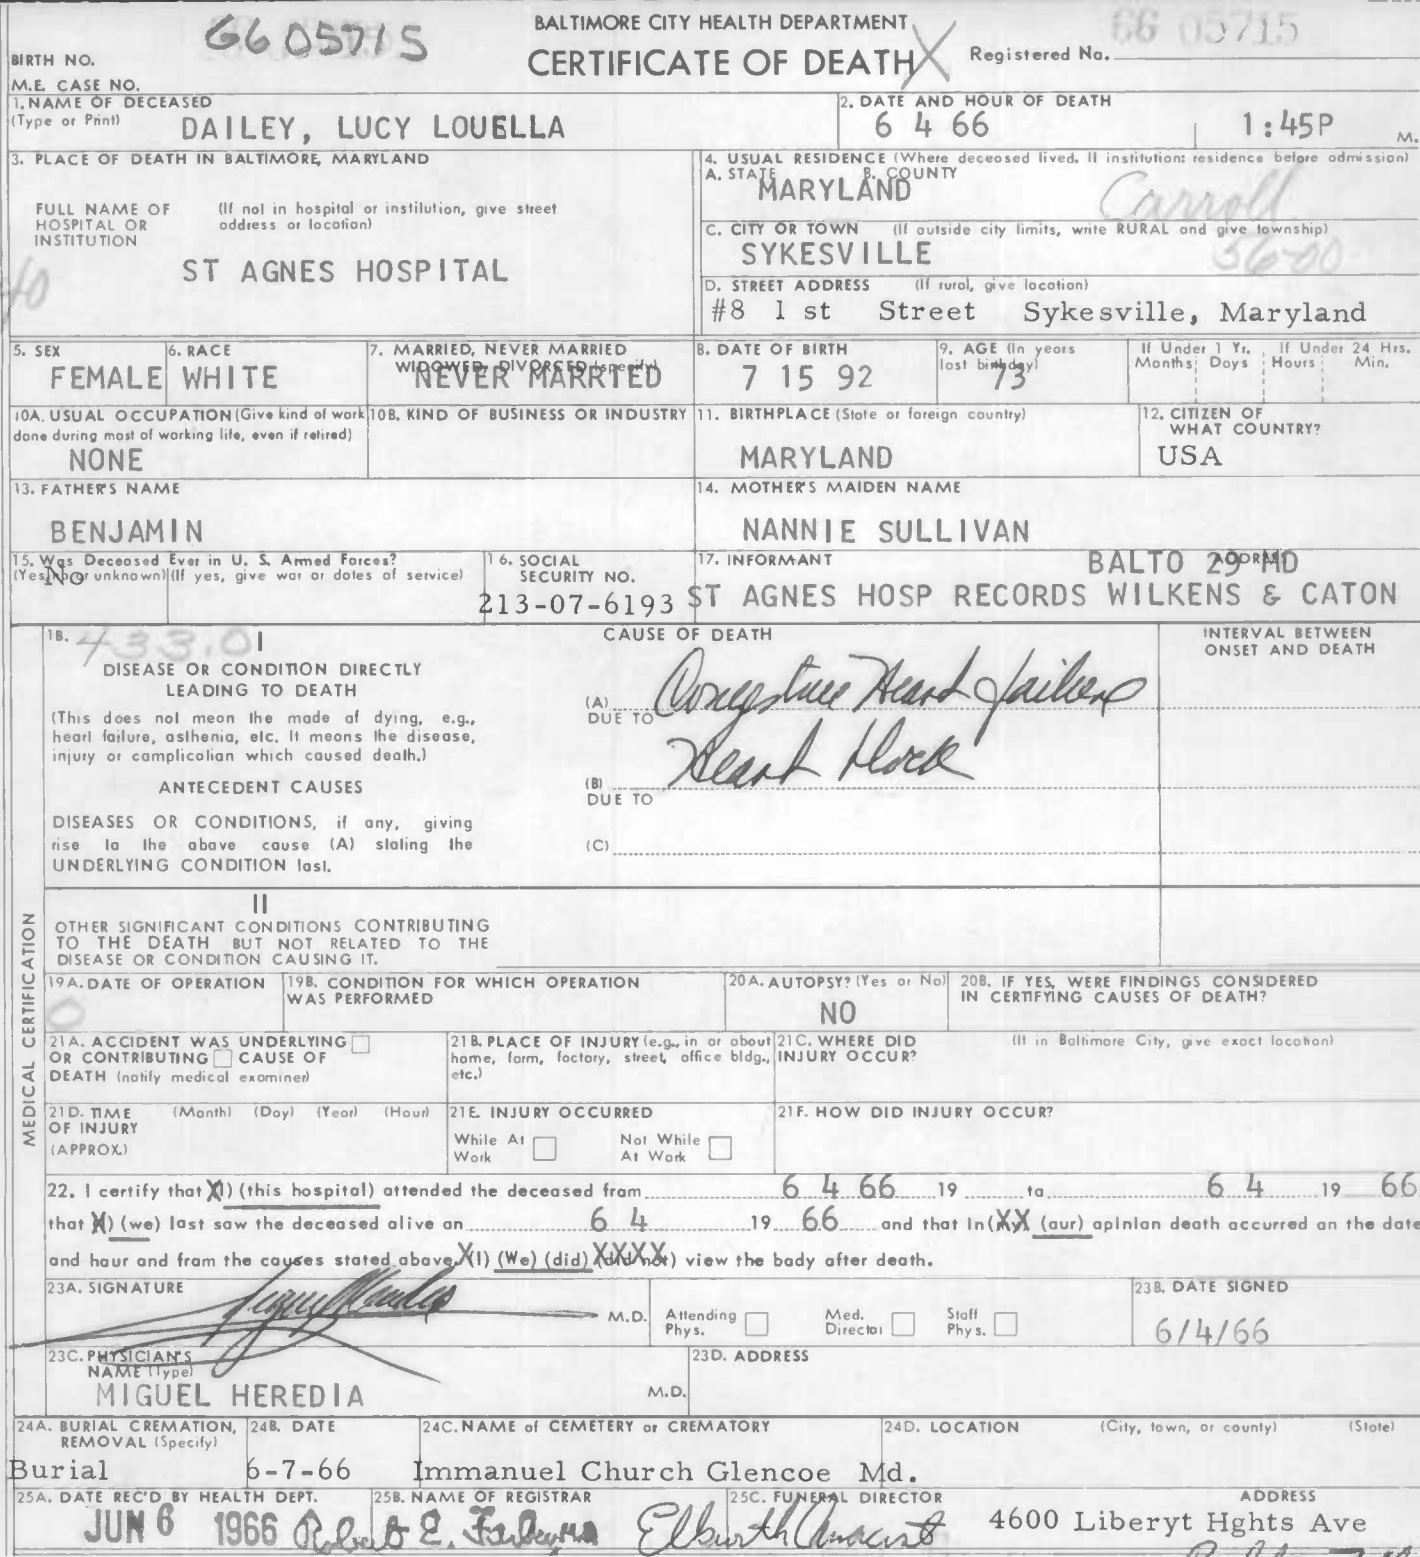 66 05715
BALTIMORE CITY HEALTH DEPARTMENT
66 05715
BIRTH NO.
CERTIFICATE OF DEATH X
Registered No.
M.E. CASE NO.
1. NAME OF DECEASED
(Type or Print)
DAILEY, LUCY LOUELLA
2. DATE AND HOUR OF DEATH
6 4 66 1:45P M.
3. PLACE OF DEATH IN BALTIMORE, MARYLAND
FULL NAME OF HOSPITAL OR INSTITUTION
(If not in hospital or institution, give street address or location)
ST AGNES HOSPITAL
40
4. USUAL RESIDENCE (Where deceased lived. If institution: residence before admission)
A. STATE B. COUNTY
MARYLAND Carroll
C. CITY OR TOWN (If outside city limits, write RURAL and give township)
SYKESVILLE 56-00
D. STREET ADDRESS (If rural, give location)
#8 1 st Street Sykesville, Maryland
5. SEX
FEMALE
6. RACE
WHITE
7. MARRIED, NEVER MARRIED
WIDOWED, DIVORCED (specify)
NEVER MARRIED
8. DATE OF BIRTH
7 15 92
9. AGE (In years last birthday)
73
If Under 1 Yr. If Under 24 Hrs.
Months Days Hours Min.
10A. USUAL OCCUPATION (Give kind of work done during most of working life, even if retired)
NONE
10B. KIND OF BUSINESS OR INDUSTRY
11. BIRTHPLACE (State or foreign country)
MARYLAND
12. CITIZEN OF WHAT COUNTRY?
USA
13. FATHER'S NAME
BENJAMIN
14. MOTHER'S MAIDEN NAME
NANNIE SULLIVAN
15. Was Deceased Ever in U. S. Armed Forces?
(Yes, no or unknown) (If yes, give war or dates of service)
No
16. SOCIAL SECURITY NO.
213-07-6193
17. INFORMANT ADDRESS
BALTO 29 MD
ST AGNES HOSP RECORDS WILKENS & CATON
MEDICAL CERTIFICATION
18. 433.0 I
CAUSE OF DEATH
INTERVAL BETWEEN ONSET AND DEATH
DISEASE OR CONDITION DIRECTLY LEADING TO DEATH
(This does not mean the mode of dying, e.g., heart failure, asthenia, etc. It means the disease, injury or complication which caused death.)
(A) Congestive Heart Failure
DUE TO
ANTECEDENT CAUSES
(B) Heart Block
DUE TO
DISEASES OR CONDITIONS, if any, giving rise to the above cause (A) stating the UNDERLYING CONDITION last.
(C)
II
OTHER SIGNIFICANT CONDITIONS CONTRIBUTING TO THE DEATH BUT NOT RELATED TO THE DISEASE OR CONDITION CAUSING IT.
19A. DATE OF OPERATION
0
19B. CONDITION FOR WHICH OPERATION WAS PERFORMED
20A. AUTOPSY? (Yes or No)
NO
20B. IF YES, WERE FINDINGS CONSIDERED IN CERTIFYING CAUSES OF DEATH?
21A. ACCIDENT WAS UNDERLYING OR CONTRIBUTING CAUSE OF DEATH (notify medical examiner)
21B. PLACE OF INJURY (e.g., in or about home, farm, factory, street, office bldg., etc.)
21C. WHERE DID INJURY OCCUR?
(If in Baltimore City, give exact location)
21D. TIME OF INJURY (APPROX.)
(Month) (Day) (Year) (Hour)
21E. INJURY OCCURRED
While At Work
Not While At Work
21F. HOW DID INJURY OCCUR?
22. I certify that X(I) (this hospital) attended the deceased from 6 4 66 19 to 6 4 19 66
that X(I) (we) last saw the deceased alive on 6 4 19 66 and that in (XX (our) opinion death occurred on the date
and hour and from the causes stated above. X(I) (We) (did) XXXX(did not) view the body after death.
23A. SIGNATURE
M.D.
Attending Phys.
Med. Director
Staff Phys.
23B. DATE SIGNED
6/4/66
23C. PHYSICIAN'S NAME (Type)
MIGUEL HEREDIA M.D.
23D. ADDRESS
24A. BURIAL CREMATION, REMOVAL (Specify)
Burial
24B. DATE
6-7-66
24C. NAME of CEMETERY or CREMATORY
24D. LOCATION (City, town, or county) (State)
Immanuel Church Glencoe Md.
25A. DATE REC'D BY HEALTH DEPT.
JUN 6 1966
25B. NAME OF REGISTRAR
Robert E.
25C. FUNERAL DIRECTOR
ADDRESS
4600 Liberyt Hghts Ave